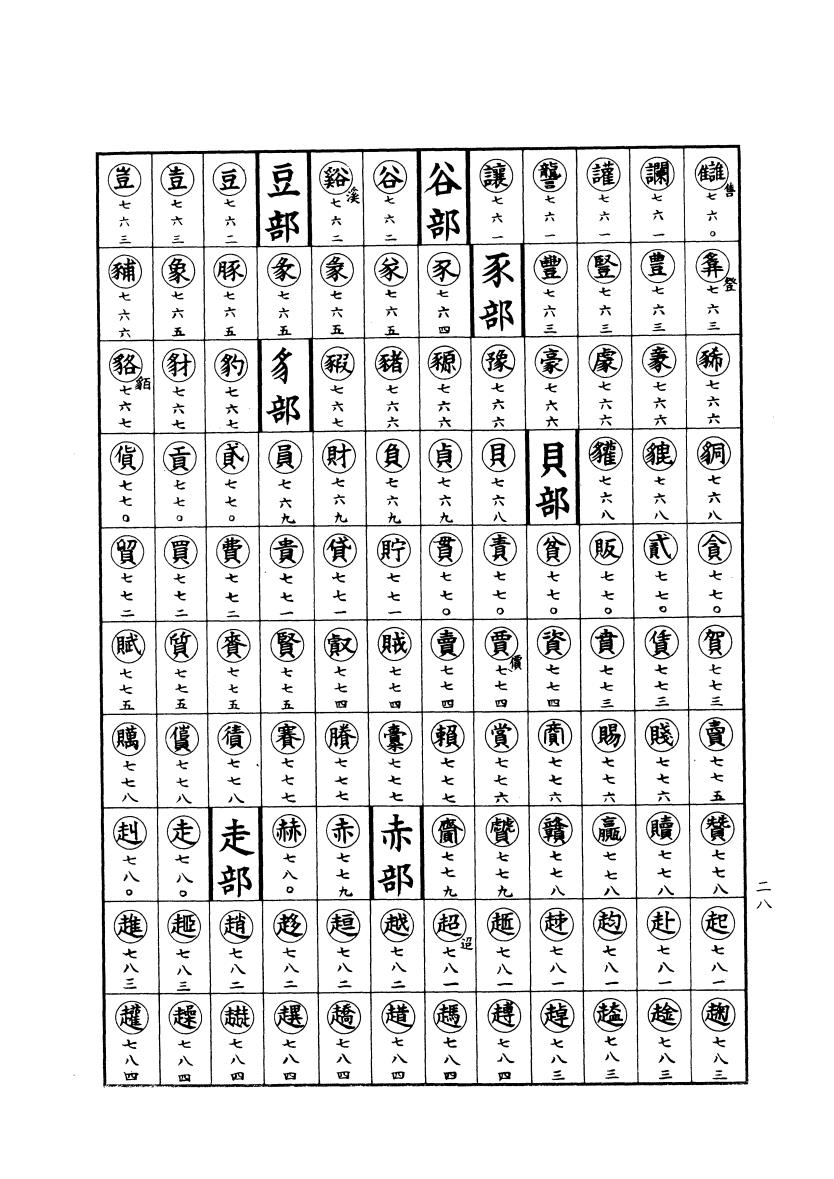 讎售七六〇 讕七六一 讙七六一 讋七六一 讓七六一 谷部 谷七六二 谿溪七六二 豆部 豆七六二 壴七六三 豈七六三
登七六三 豊七六三 豎七六三 豐七六三 豕部 豕七六四 㒸七六五 彖七六五 七六五 豚七六五 象七六五 豧七六六
豨七六六 七六六 豦七六六 豪七六六 豫七六六 豲七六六 豬七六六 豭七六七 豸部 豹七六七 豺七六七 貉貊七六七
七六八 貔七六八 貛七六八 貝部 貝七六八 貞七六九 負七六九 財七六九 員七六九 貣七七〇 貢七七〇 貨七七〇
貪七七〇 貳七七〇 販七七〇 貧七七〇 責七七〇 貫七七〇 貯七七一 貸七七一 貴七七一 費七七二 買七七二 貿七七二
賀七七三 賃七七三 賁七七三 資七七四 賈價七七四 賣七七四 賊七七四 七七四 賢七七五 賚七七五 質七七五 賦七七五
賣七七五 賤七七六 賜七七六 七七六 賞七七六 賴七七七 七七七 賸七七七 賽七七七 債七七八 償七七八 七七八
贊七七八 贖七七八 贏七七八 贛七七八 七七九 七七九 赤部 赤七七九 赫七八〇 走部 走七八〇 赳七八〇
起七八一 赴七八一 七八一 七八一 七八一 超迢七八一 越七八二 趄七八二 趍七八二 趙七八二 七八三 趡七八三
趜七八三 七八三 七八三 趠七八三 七八四 七八四 趞七八四 趫七八四 七八四 七八四 趮七八四 七八四
二八